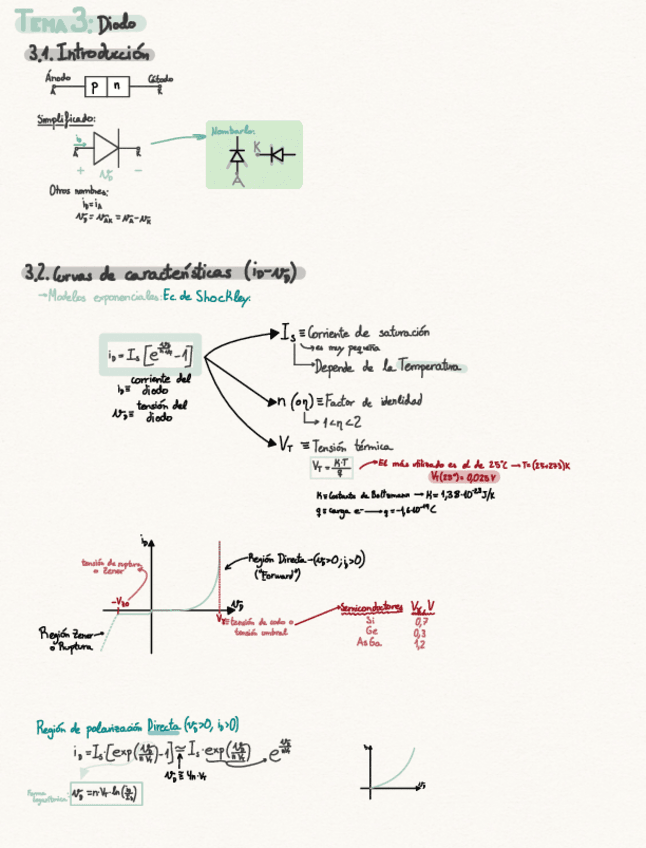 TEMA 3: Diodo
3.1. Introducción
Ánodo
Cátodo
A
p n
K
Simplificado:
i_D
A
K
+ v_D −
Nombarlo:
K
A
Otros nombres:
i_D = i_A
v_D = v_AK = v_A − v_K
3.2. Curvas de características (i_D − v_D)
→Modelos exponenciales: Ec. de Shockley.
i_D = I_s [e^(v_D/(n·V_T)) − 1]
i_D ≡ corriente del diodo
v_D ≡ tensión del diodo
I_s ≡ Corriente de saturación
→ es muy pequeña
→ Depende de la Temperatura
n (o η) ≡ Factor de identidad
→ 1<n<2
V_T ≡ Tensión térmica
V_T = K·T/q
→ El más utilizado es el de 25°C → T=(25+273)K
V_T(25°) = 0,025V
K ≡ Constante de Boltzmann → K = 1,38·10^-23 J/K
q ≡ carga e- → q = -1,6·10^-19 C
i_D
tensión de ruptura
o Zener
−V_Z0
Región Directa → (v_D>0; i_D>0)
("Forward")
v_D
V_γ ≡ tensión de codo o
tensión umbral
Región Zener
o Ruptura
Semiconductores V_γ, V
Si 0,7
Ge 0,3
AsGa 1,2
Región de polarización Directa (v_D>0, i_D>0)
i_D = I_s·[exp(v_D/(n·V_T)) − 1] ≃ I_s·exp(v_D/(n·V_T)) → e^(v_D/(n·V_T))
v_D ≥ 4n·V_T
Forma
logarítmica:
v_D = n·V_T·ln(i_D/I_s)
i_D
v_D